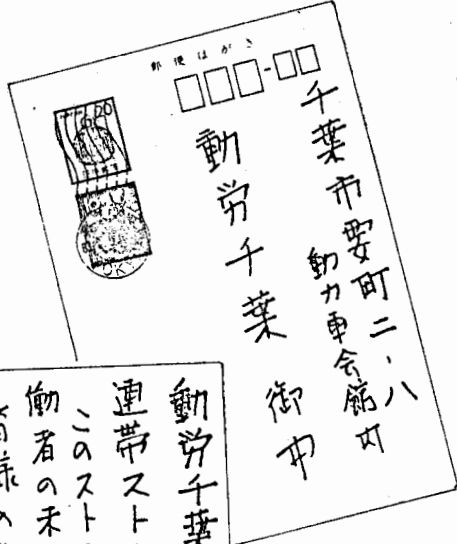 郵便はがき
千葉市要町二‐八
動力車会館内
動労千葉 御中
動労千葉
連帯スト
このスト
働者の未
皆様の